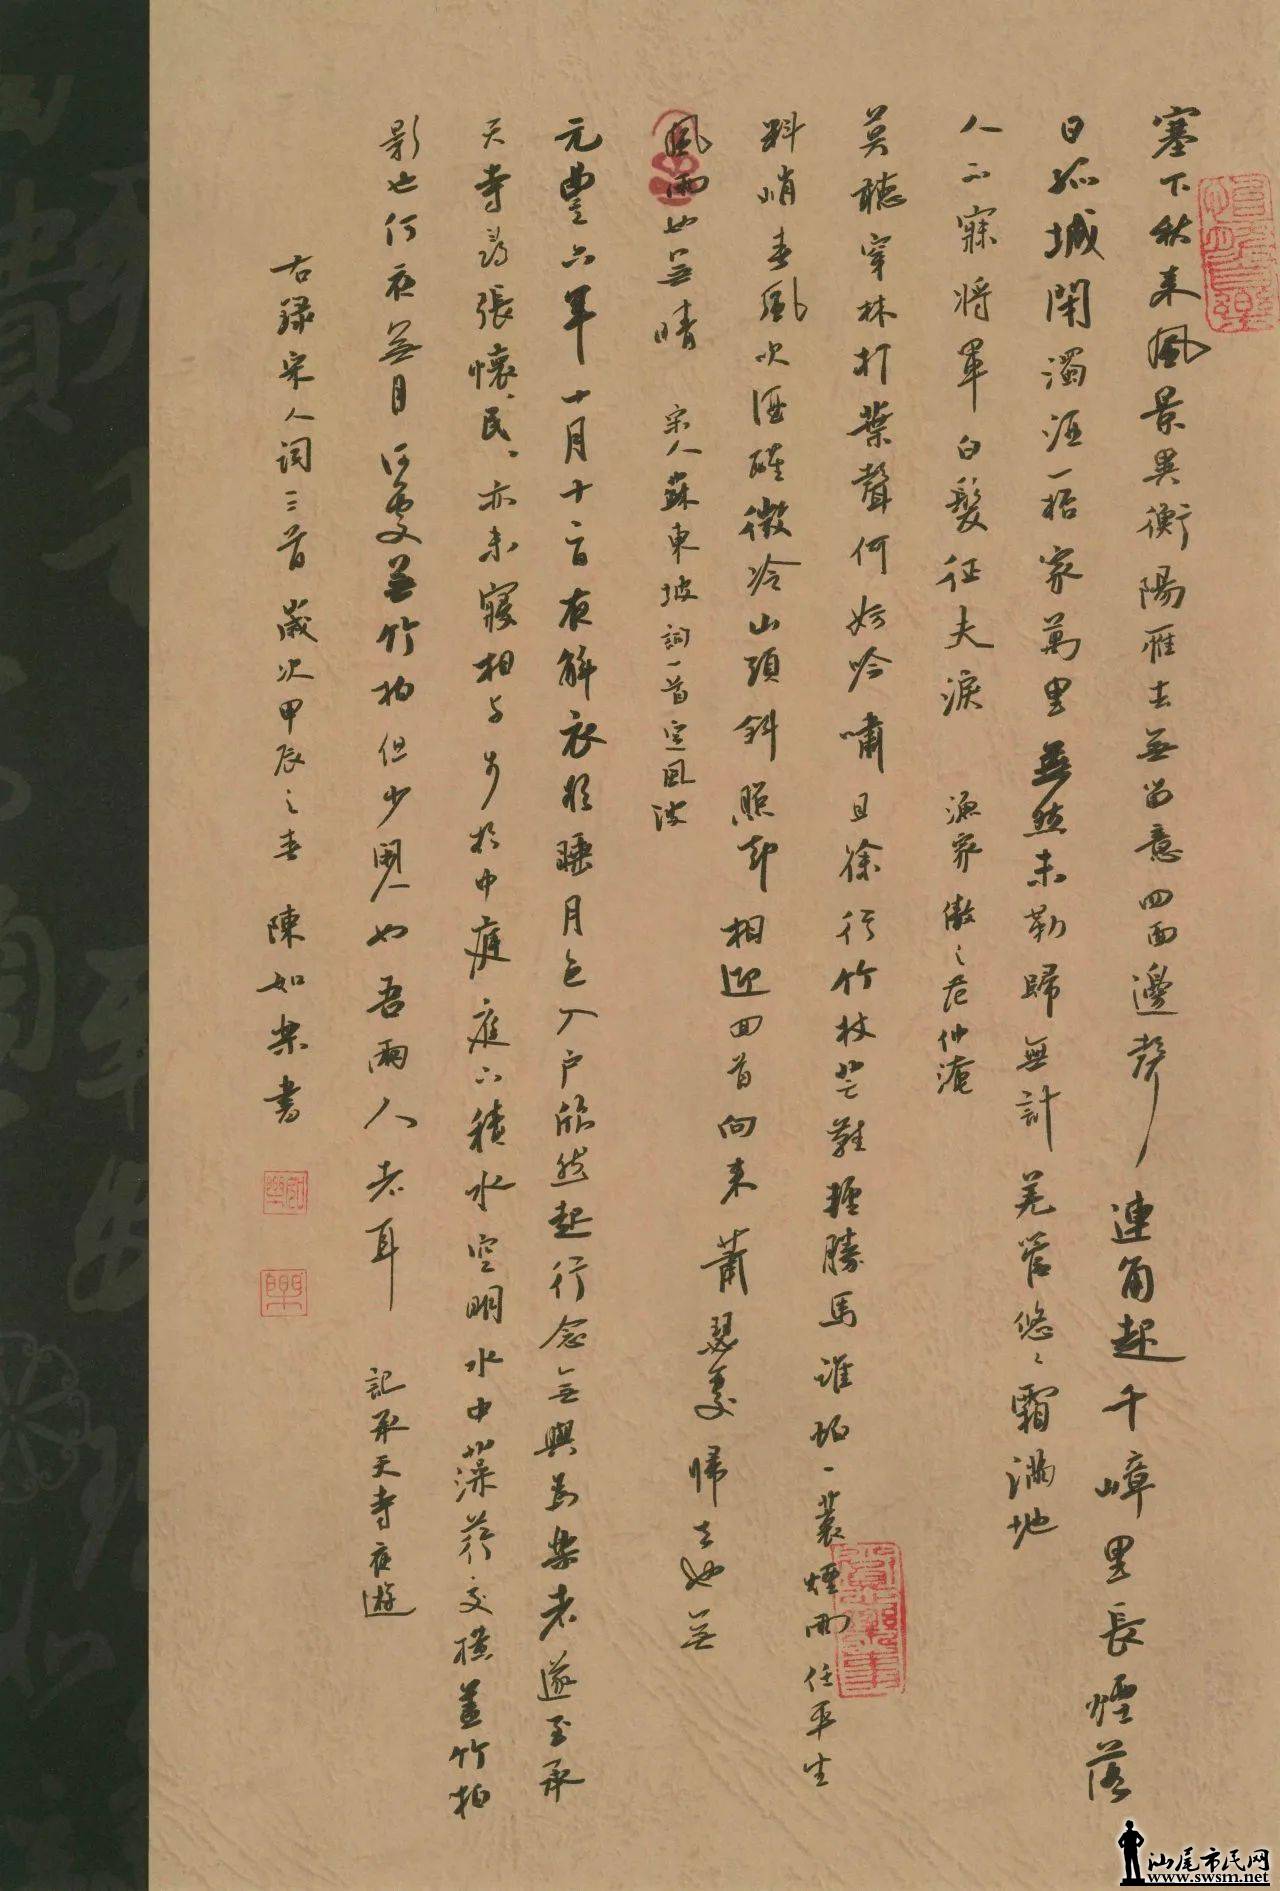 塞下秋来風景異衡陽雁去無留意四面邊聲連角起千嶂里長煙落
日孤城閉濁酒一杯家萬里燕然未勒歸無計羌管悠悠霜滿地
人不寐将軍白髮征夫淚 漁家傲之范仲淹
莫聴穿林打葉聲何妨吟嘯且徐行竹杖芒鞋輕勝馬誰怕一蓑煙雨任平生
料峭春風吹酒醒微冷山頭斜照却相迎回首向来蕭瑟處歸去也無
風雨也無晴 宋人蘇東坡詞一首定風波
元豐六年十月十二日夜解衣欲睡月色入户欣然起行念無與為樂者遂至承
天寺尋張懷民懷民亦未寢相与步於中庭庭下積水空明水中藻荇交橫蓋竹柏
影也何夜無月何處無竹柏但少閑人如吾兩人者耳 記承天寺夜遊
右録宋人詞三首歲次甲辰之春 陳如樂書
汕尾市民网
www.swsm.net